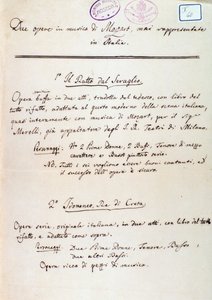 Due opere in musica di Mozart, mai rappresentate
in Italia.
1ª Il Ratto dal Serraglio.
Opera buffa in due atti, tradotta dal tedesco, con libro del
tutto rifatto, adattata al gusto moderno della scena italiana,
quasi interamente con musica di Mozart, per il Sigʳ
Merelli, già appaltatore degli I. R. Teatri di Milano.
Personaggi: Tre Prime Donne, Tenore, 2 Bassi,
carattere e
NB. Tutti i sei vogliono essere buoni cantanti, ed
il successo dell'opera è sicuro.
2ª Idomeneo, Re di Creta.
Opera seria, originale italiana, in due atti, con libro del tutto
rifatto, e adattato come sopra.
Personaggi: Due Prime Donne, Tenore, Basso
due altri Bassi.
Opera ricca di pezzi di musica.